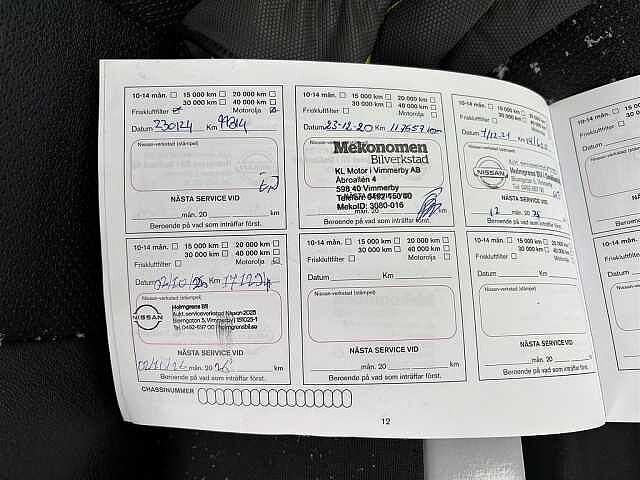 10-14 mån. 15 000 km 20 000 km
30 000 km 40 000 km
Friskluftfilter Motorolja
Datum 230124 Km 99814
Nissan-verkstad (stämpel)
NÄSTA SERVICE VID
mån. 20 km
Beroende på vad som inträffar först.
10-14 mån. 15 000 km 20 000 km
30 000 km 40 000 km
Friskluftfilter Motorolja
Datum 23-12-20 Km 117657
Nissan-verkstad (stämpel)
Mekonomen
Bilverkstad
KL Motor i Vimmerby AB
Åbroallén 4
598 40 Vimmerby
Telefon: 0492-150 80
MekoID: 3080-016
NÄSTA SERVICE VID
mån. 20 km
Beroende på vad som inträffar först.
10-14 mån. 15 000 km 20 000 km
30 000 km 40 000 km
Friskluftfilter Motorolja
Datum Km
Nissan-verkstad (stämpel)
NISSAN
NÄSTA SERVICE VID
12 mån. 20 25 km
Beroende på vad som inträffar först.
10-14 mån. 15 000 km 20 000 km
30 000 km 40 000 km
Friskluftfilter Motorolja
Datum 02/10/25 Km
Nissan-verkstad (stämpel)
NISSAN
Holmgrens Bil
Aukt. serviceverkstad Nissan 2025
NÄSTA SERVICE VID
02/10/26 mån. 20 26 km
Beroende på vad som inträffar först.
10-14 mån. 15 000 km 20 000 km
30 000 km 40 000 km
Friskluftfilter Motorolja
Datum Km
Nissan-verkstad (stämpel)
NÄSTA SERVICE VID
mån. 20 km
Beroende på vad som inträffar först.
10-14 mån. 15 000 km 20 000 km
30 000 km 40 000 km
Friskluftfilter Motorolja
Datum Km
Nissan-verkstad (stämpel)
NÄSTA SERVICE VID
mån. 20 km
Beroende på vad som inträffar först.
CHASSINUMMER
12